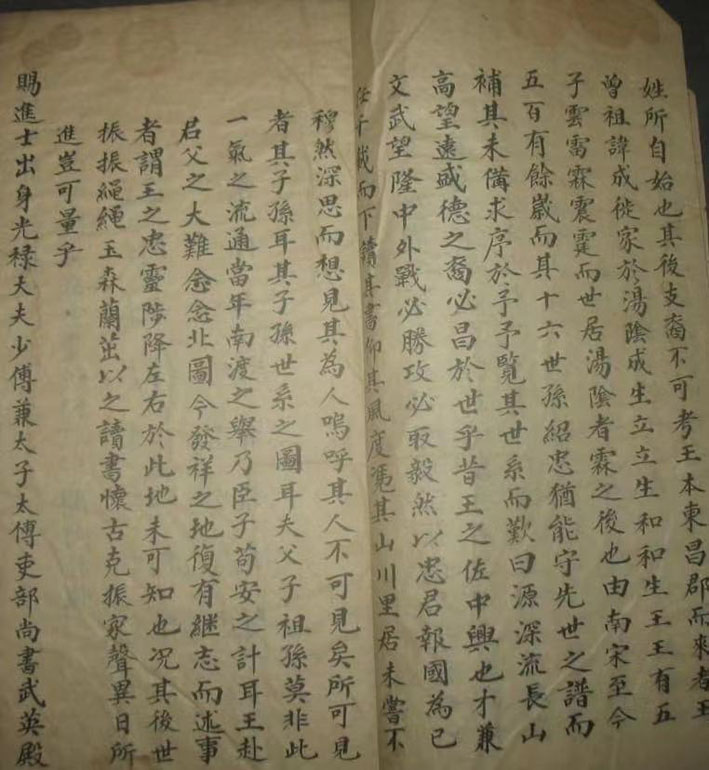 姓所自始也其後支裔不可考王本東昌郡而來者王
曾祖諱成徙家於湯陰成生立立生和和生王王有五
子雲雷霖震霆而世居湯陰者霖之後也由南宋至今
五百有餘歲而其十六世孫紹忠猶能守先世之譜而
補其未備求序於予予覽其世系而歎曰源深流長山
高望遠盛德之裔必昌於世乎昔王之佐中興也才兼
文武望隆中外戰必勝攻必取毅然以忠君報國為己
任千載而下讀其書仰其風度馮其山川里居未嘗不
穆然深思而想見其為人嗚呼其人不可見矣所可見
者其子孫耳其子孫世系之圖耳夫父子祖孫莫非此
一氣之流通當年南渡之舉乃臣子苟安之計耳王赴
君父之大難念念北圖今發祥之地復有繼志而述事
者謂王之忠靈陟降左右於此地未可知也況其後世
振振繩繩玉森蘭茁以之讀書懷古克振家聲異日所
進豈可量乎
賜進士出身光祿大夫少傅兼太子太傅吏部尚書武英殿